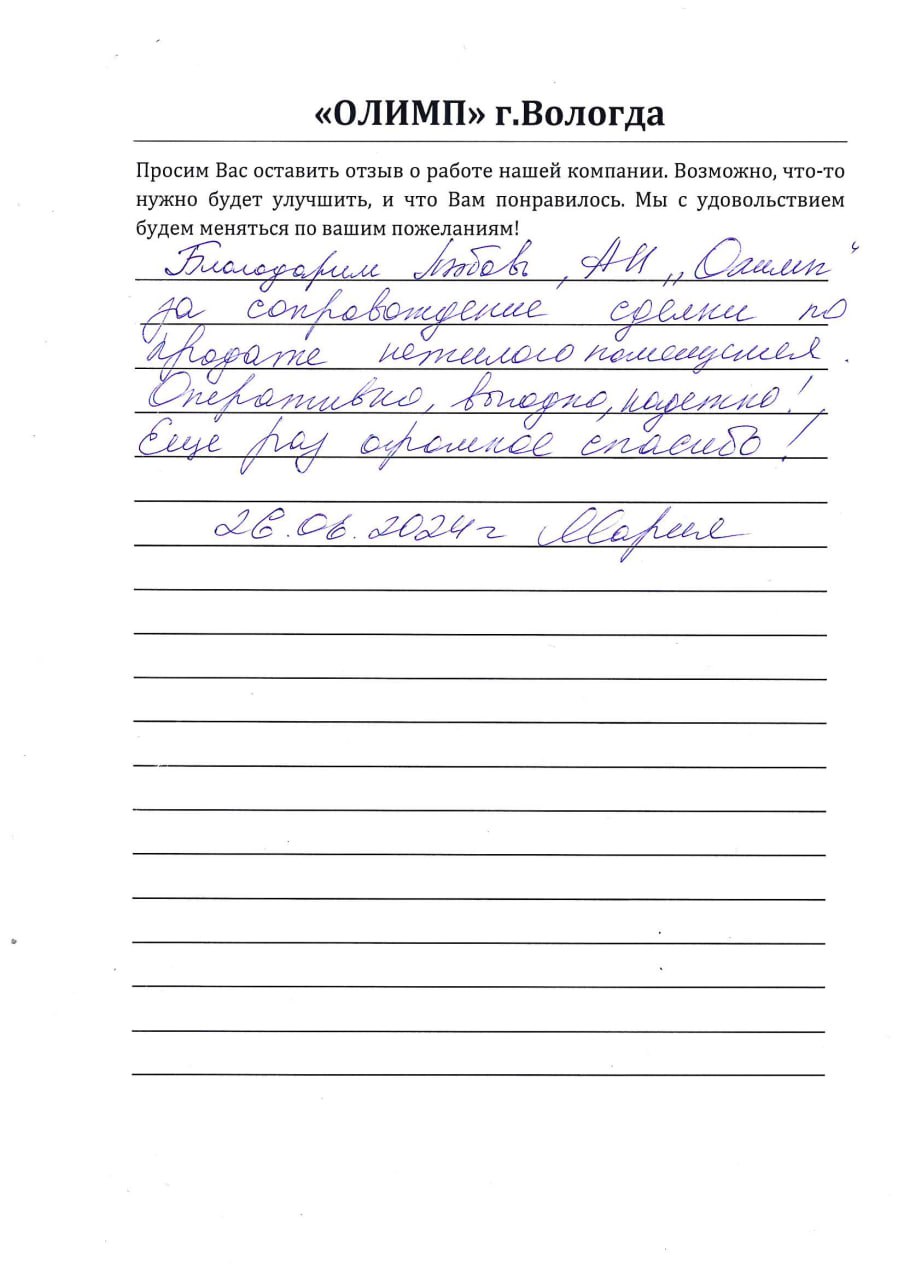 «ОЛИМП» г.Вологда
Просим Вас оставить отзыв о работе нашей компании. Возможно, что-то
нужно будет улучшить, и что Вам понравилось. Мы с удовольствием
будем меняться по вашим пожеланиям!
Благодарим Любовь, АН „Олимп“
за сопровождение сделки по
продаже нежилого помещения.
Оперативно, выгодно, надежно!
Еще раз огромное спасибо!
26.06.2024 г Мария